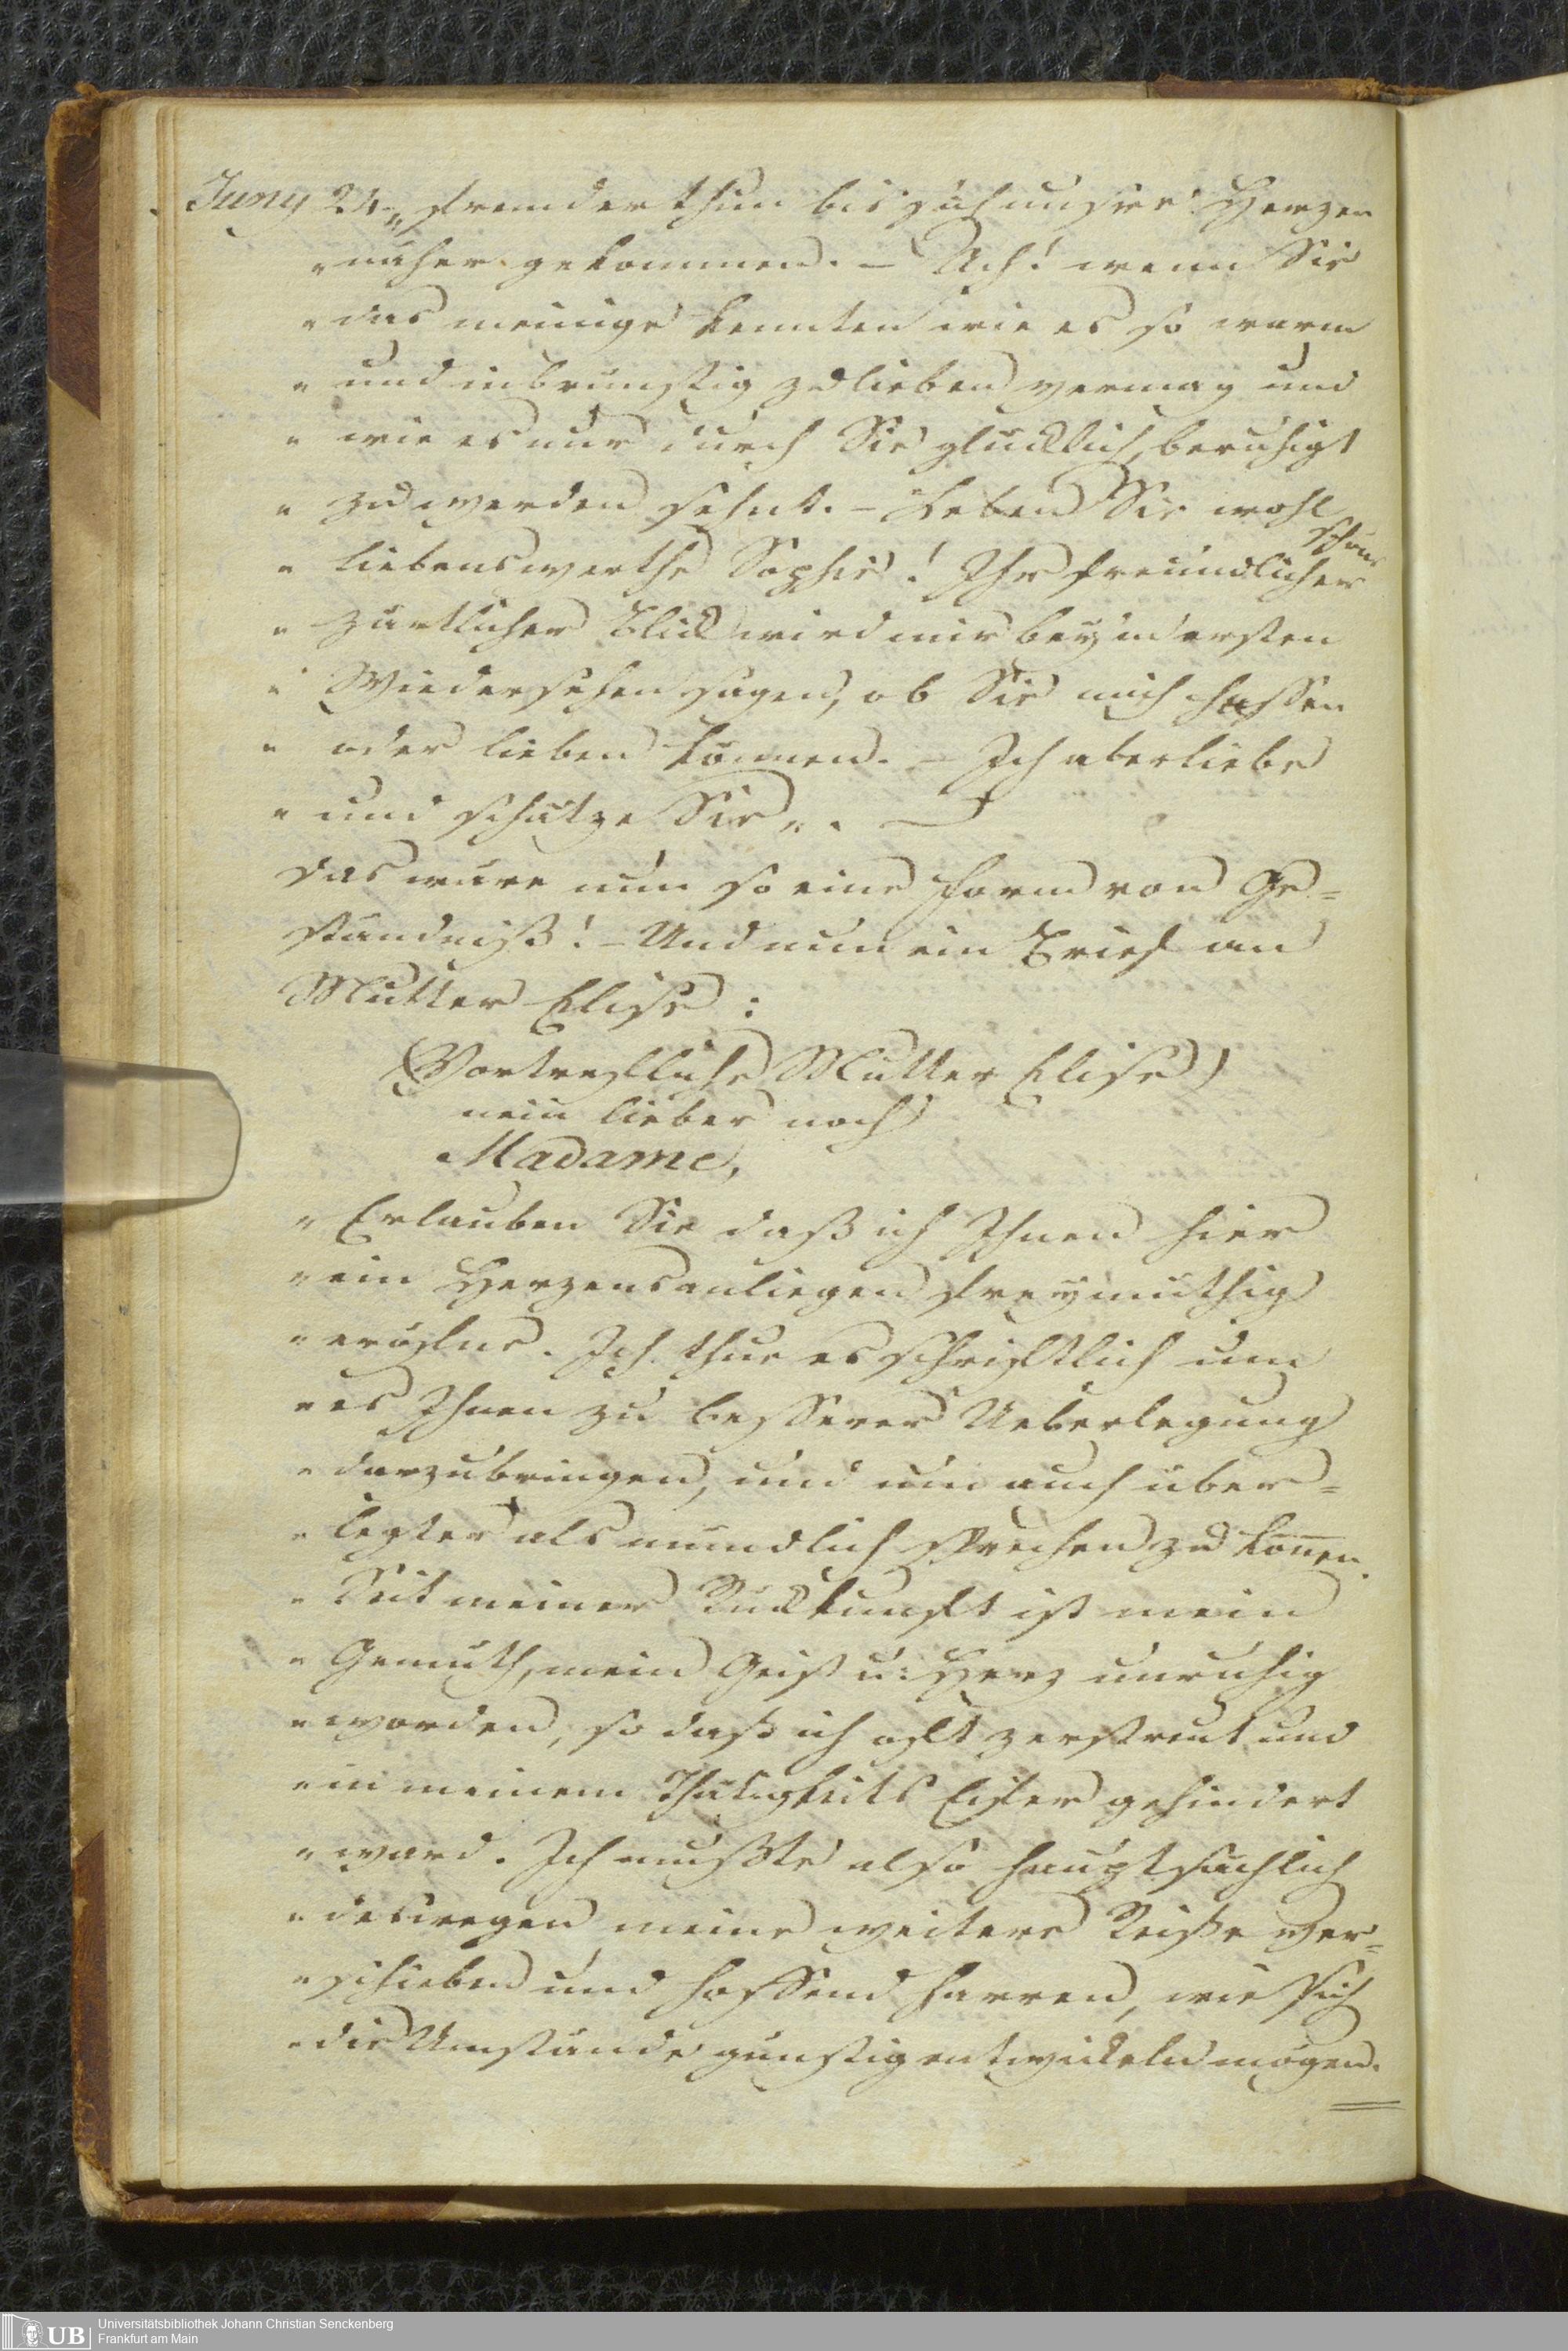 Juny 24. „fremder thun bis sich unsere Herzen
„näher gekommen. – Ach! wenn Sie
„das meinige kennten wie es so warm
„und inbrünstig zu lieben vermag und
„wie es nur durch Sie glücklich, beruhigt
„zu werden sehnt. – Leben Sie wohl
„liebenswerthe Sophie! Ihr freundlicher
schöner
„zärtlicher Blick wird mir beym ersten
„Wiedersehen sagen, ob Sie mich hassen
„oder lieben können. – Ich aber liebe
„und schätze Sie„. –
Das wäre nun so eine Form von Ge=
ständniß! – Und nun ein Brief an
Mutter Elise:
(Vortrefliche Mutter Elise)
nein lieber noch
Madame,
„Erlauben Sie daß ich Ihnen hier
„ein Herzensanliegen freymüthig
„eröfne. Ich thue es schriftlich um
„es Ihnen zu besserer Ueberlegung
„darzubringen, und um auch über=
„legter als mündlich sprechen zu können.
„Seit meiner Rückkunft ist mein
„Gemüth, mein Geist u: Herz unruhig
„worden, so daß ich oft zerstreut und
„in meinem Thätigkeits Eifer gehindert
„ward. Ich mußte also hauptsächlich
„deswegen meine weitere Reise ver=
„schieben und hoffend harren, wie sich
„die Umstände günstig entwickeln mögen.
UB
Universitätsbibliothek Johann Christian Senckenberg
Frankfurt am Main